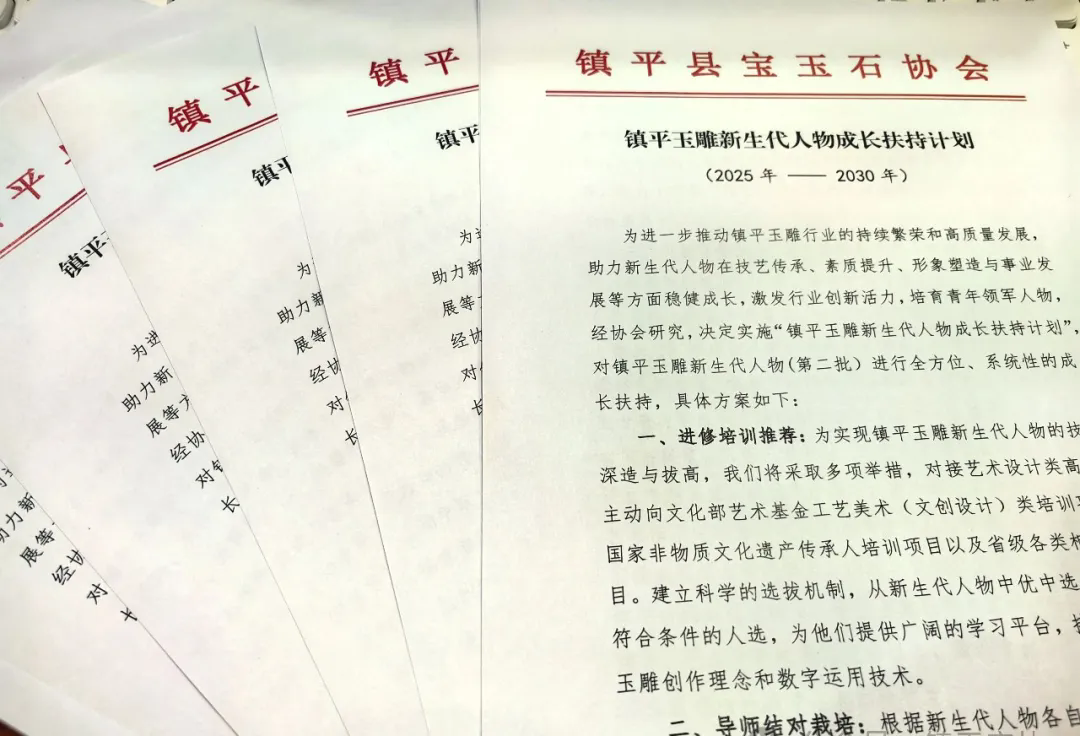 镇平县宝玉石协会
镇平玉雕新生代人物成长扶持计划
（2025 年 —— 2030 年）
为进一步推动镇平玉雕行业的持续繁荣和高质量发展，
助力新生代人物在技艺传承、素质提升、形象塑造与事业发
展等方面稳健成长，激发行业创新活力，培育青年领军人物，
经协会研究，决定实施“镇平玉雕新生代人物成长扶持计划”，
对镇平玉雕新生代人物(第二批）进行全方位、系统性的成
长扶持，具体方案如下：
一、进修培训推荐：为实现镇平玉雕新生代人物的技
深造与拔高，我们将采取多项举措，对接艺术设计类高
主动向文化部艺术基金工艺美术（文创设计）类培训
国家非物质文化遗产传承人培训项目以及省级各类
目。建立科学的选拔机制，从新生代人物中优中选
符合条件的人选，为他们提供广阔的学习平台，
玉雕创作理念和数字运用技术。
二、导师结对栽培：根据新生代人物各自
镇平
镇平
为
助力新
展等
经协
对
长
镇平
镇平
为
助力新
展等
经协
对
长
平
镇平
为进
助力新
展等方
经协
对镇
长
助力新
展等
经协
对